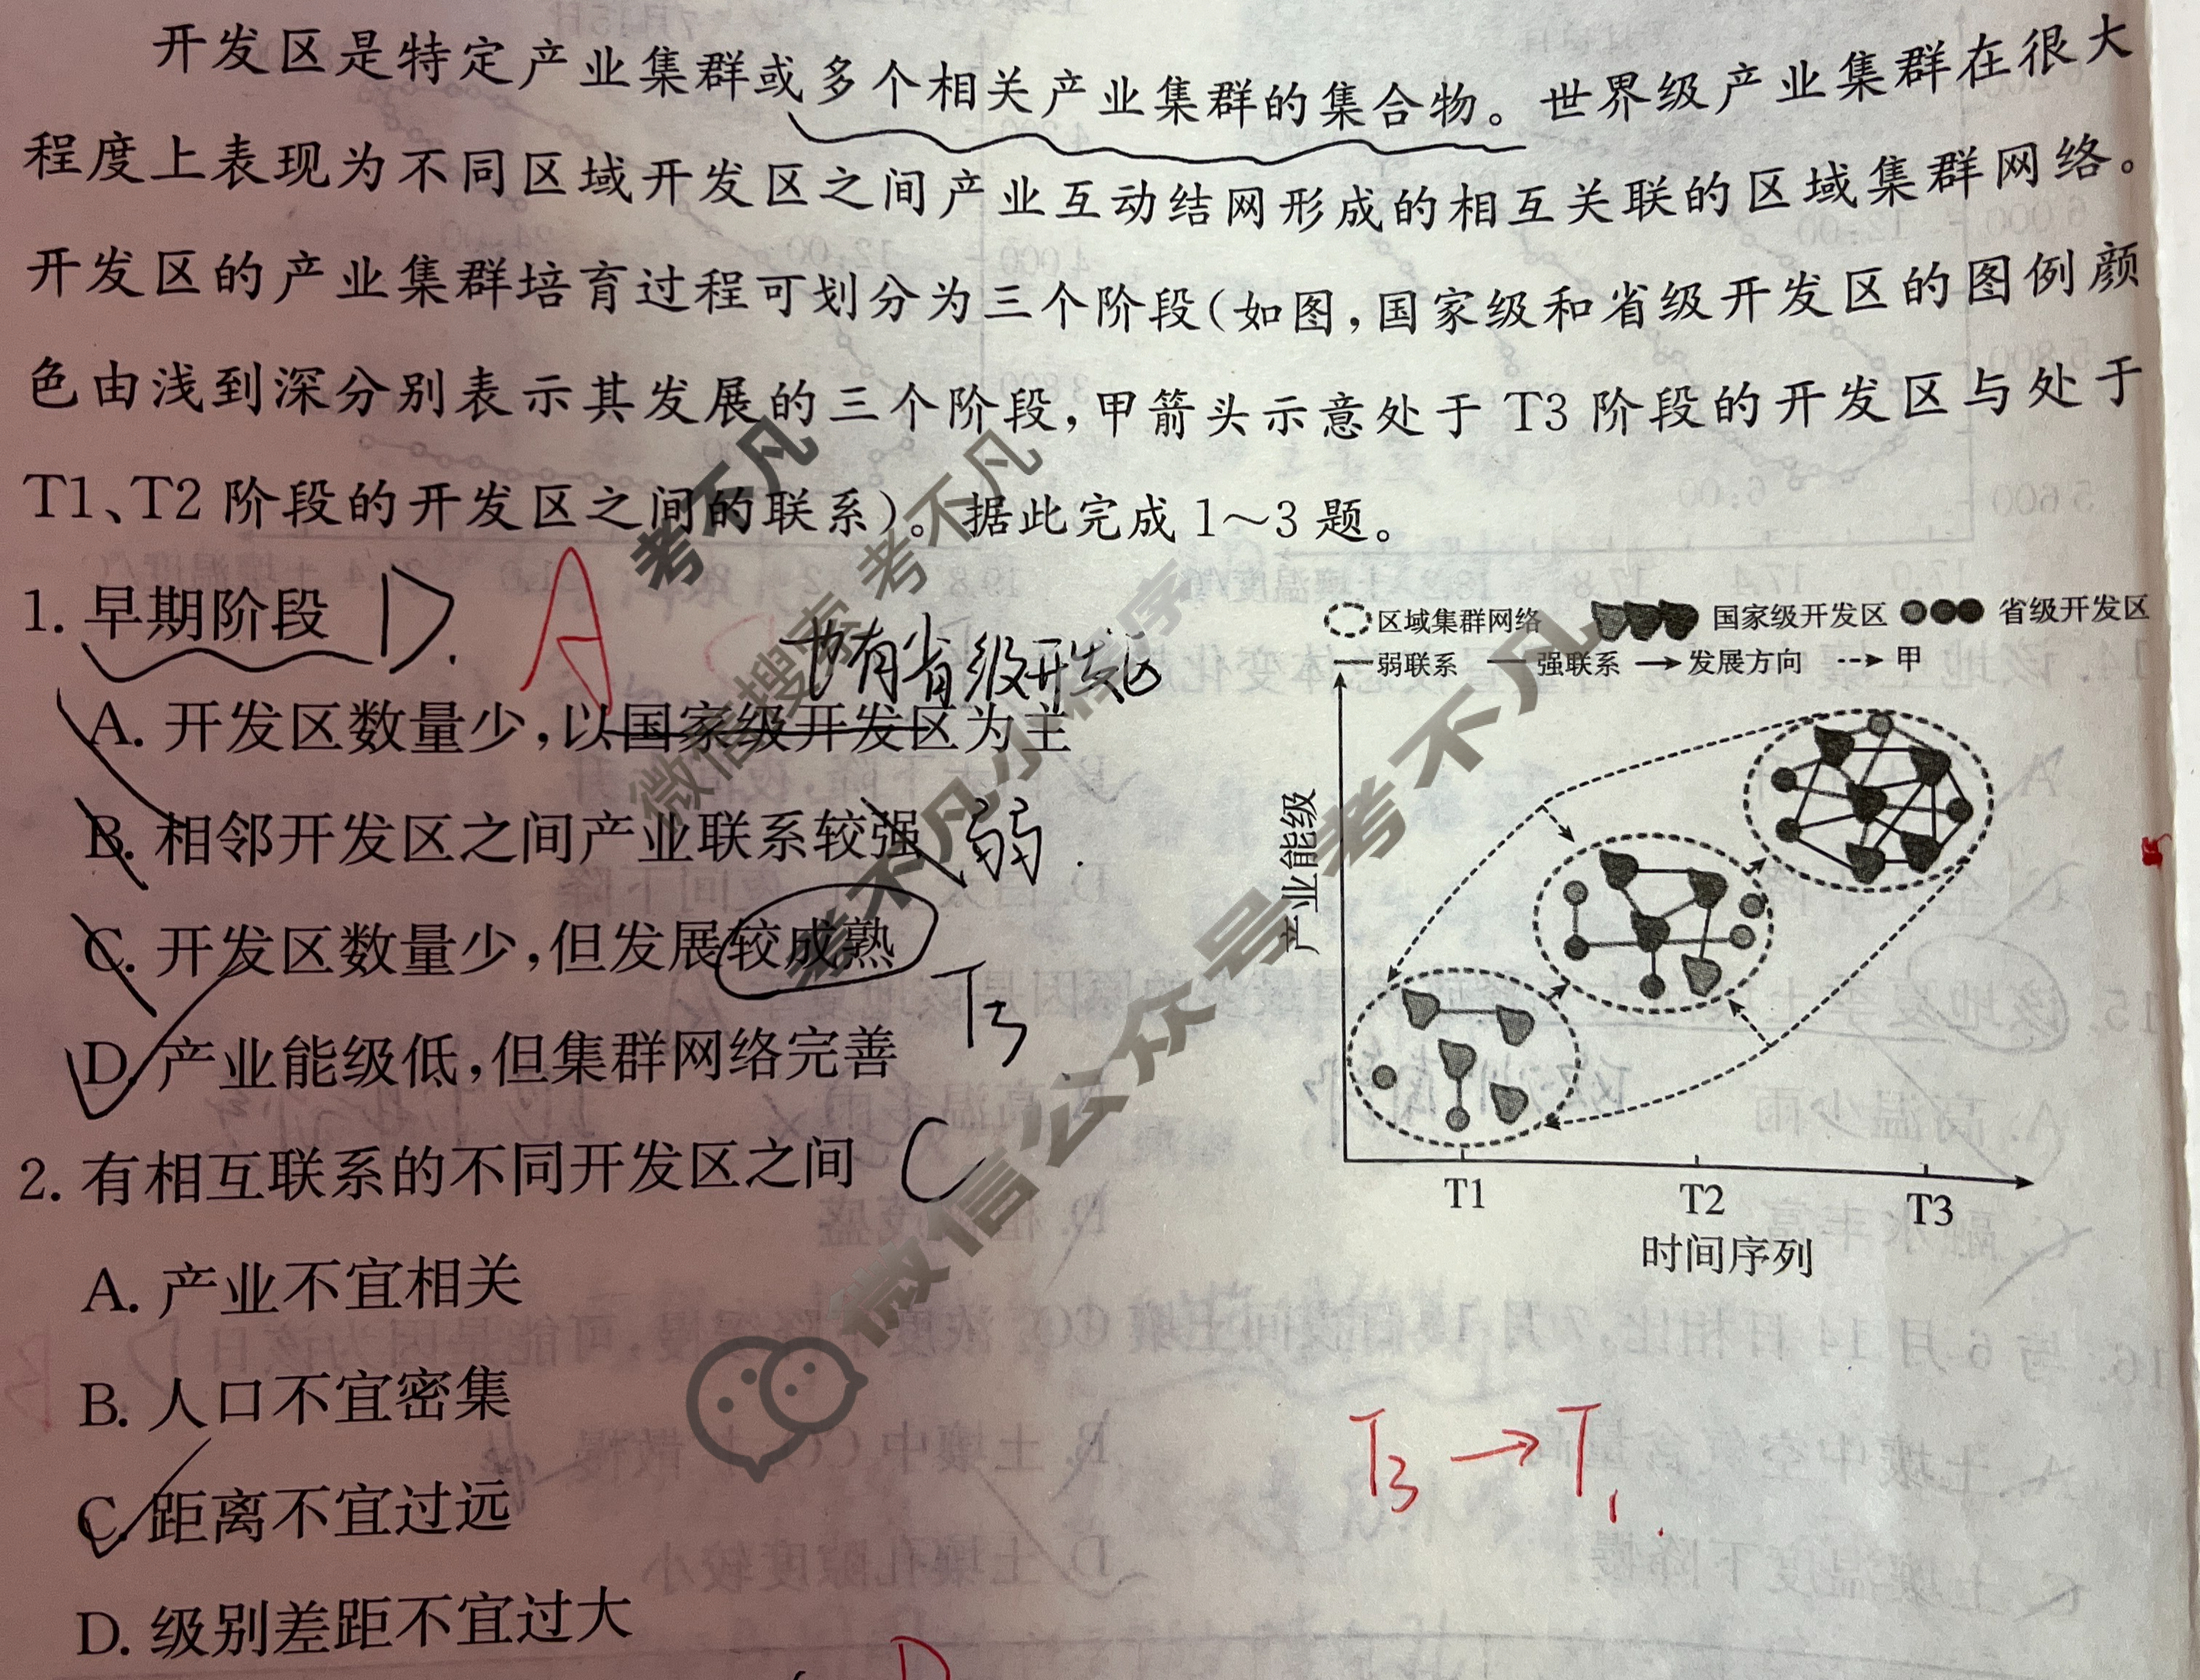 开发区是特定产业集群或多个相关产业集群的集合物。世界级产业集群在很大
程度上表现为不同区域开发区之间产业互动结网形成的相互关联的区域集群网络。
开发区的产业集群培育过程可划分为三个阶段(如图,国家级和省级开发区的图例颜
色由浅到深分别表示其发展的三个阶段,甲箭头示意处于 T3 阶段的开发区与处于
T1、T2 阶段的开发区之间的联系)。据此完成 1～3 题。
1. 早期阶段 D. A
也有省级开发区
A. 开发区数量少,以国家级开发区为主
B. 相邻开发区之间产业联系较强 弱.
C. 开发区数量少,但发展较成熟 T3
D. 产业能级低,但集群网络完善
2. 有相互联系的不同开发区之间 C
A. 产业不宜相关
B. 人口不宜密集
C. 距离不宜过远
D. 级别差距不宜过大
D
区域集群网络 国家级开发区 省级开发区
弱联系 强联系 发展方向 甲
产业能级
T1 T2 T3
时间序列
T3→T1.
考不凡
考不凡
微信搜索
考不凡小程序
微信公众号 考不凡